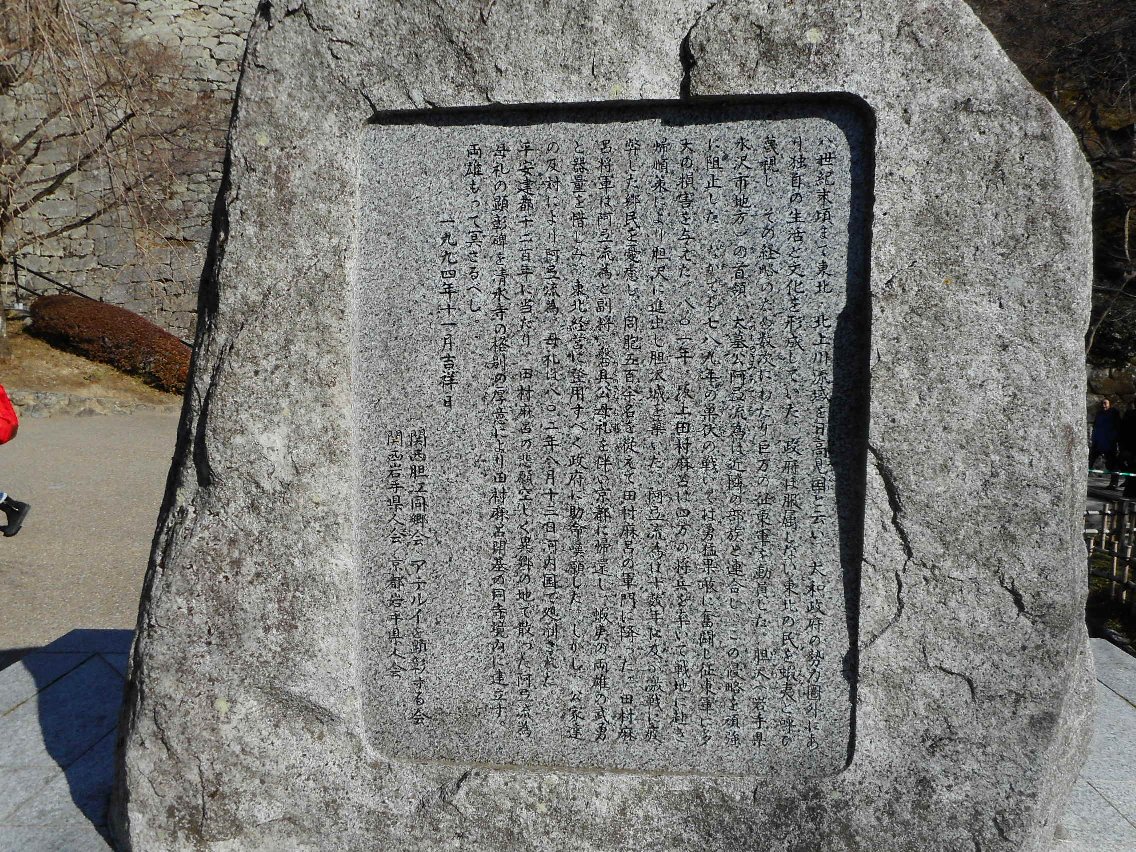 八世紀末頃まで東北・北上川流域を日高見国と云い、大和政府の勢力圏外にあ
り独自の生活と文化を形成していた。政府は服属しない東北の民を蝦夷と呼び
蔑視し、その経略のため数次にわたり巨万の征東軍を動員した。胆沢(岩手県
水沢市地方)の首領、大墓公阿弖流為は近隣の部族と連合し、この侵略を頑強
に阻止した。なかでも七八九年の巣伏の戦いでは勇猛果敢に奮闘し征東軍に多
大の損害を与えた。八〇一年、坂上田村麻呂は四万の将兵を率いて戦地に赴き
帰順策により胆沢に進出し胆沢城を築いた。阿弖流為は十数年に及ぶ激戦に疲
弊した郷民を憂慮し、同胞五百余名を従えて田村麻呂の軍門に降った。田村麻
呂将軍は阿弖流為と副将磐具公母礼を伴い京都に帰還し、蝦夷の両雄の武勇
と器量を惜しみ、東北経営に登用すべく政府に助命嘆願した。しかし、公家達
の反対により阿弖流為、母礼は八〇二年八月十三日河内国で処刑された。
平安建都千二百年に当たり、田村麻呂の悲願空しく異郷の地で散った阿弖流為
母礼の顕彰碑を清水寺の格別の厚意により田村麻呂開基の同寺境内に建立す。
両雄もって冥さるべし。
一九九四年十一月吉祥日
関西胆江同郷会/アテルイを顕彰する会
関西岩手県人会/京都岩手県人会